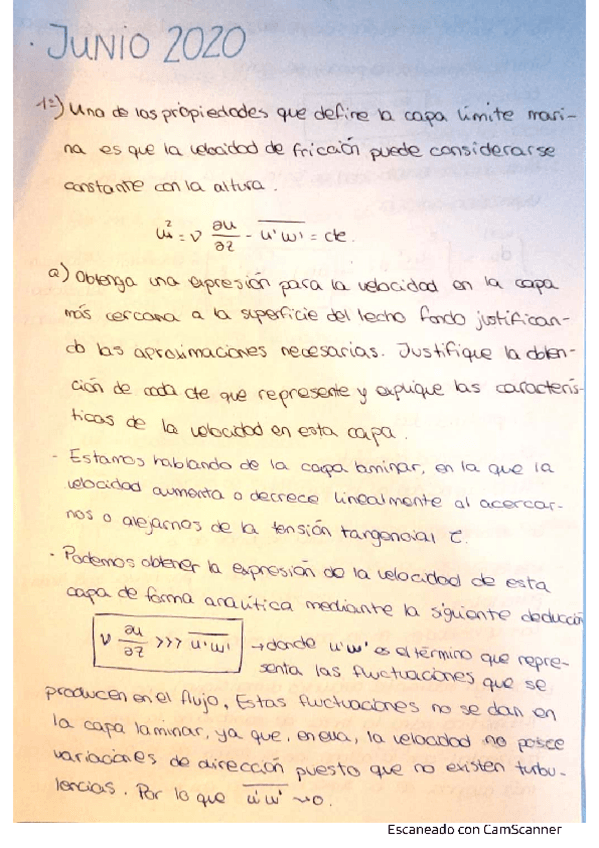 · JUNIO 2020
1º) Una de las propiedades que define la capa límite mari-
na es que la velocidad de fricción puede considerarse
constante con la altura.
u*² = ν ∂u/∂z - u'w' = cte.
a) Obtenga una expresión para la velocidad en la capa
más cercana a la superficie del lecho fondo justifican-
do las aproximaciones necesarias. Justifique la obten-
ción de cada cte que represente y explique las caracterís-
ticas de la velocidad en esta capa.
- Estamos hablando de la capa laminar, en la que la
velocidad aumenta o decrece linealmente al acercar-
nos o alejarnos de la tensión tangencial τ.
· Podemos obtener la expresión de la velocidad de esta
capa de forma analítica mediante la siguiente deducción
ν ∂u/∂z >>> u'w' → donde u'w' es el término que repre-
senta las fluctuaciones que se
producen en el flujo, Estas fluctuaciones no se dan en
la capa laminar, ya que, en ella, la velocidad no posee
variaciones de dirección puesto que no existen turbu-
lencias. Por lo que u'w' ~ 0.
Escaneado con CamScanner